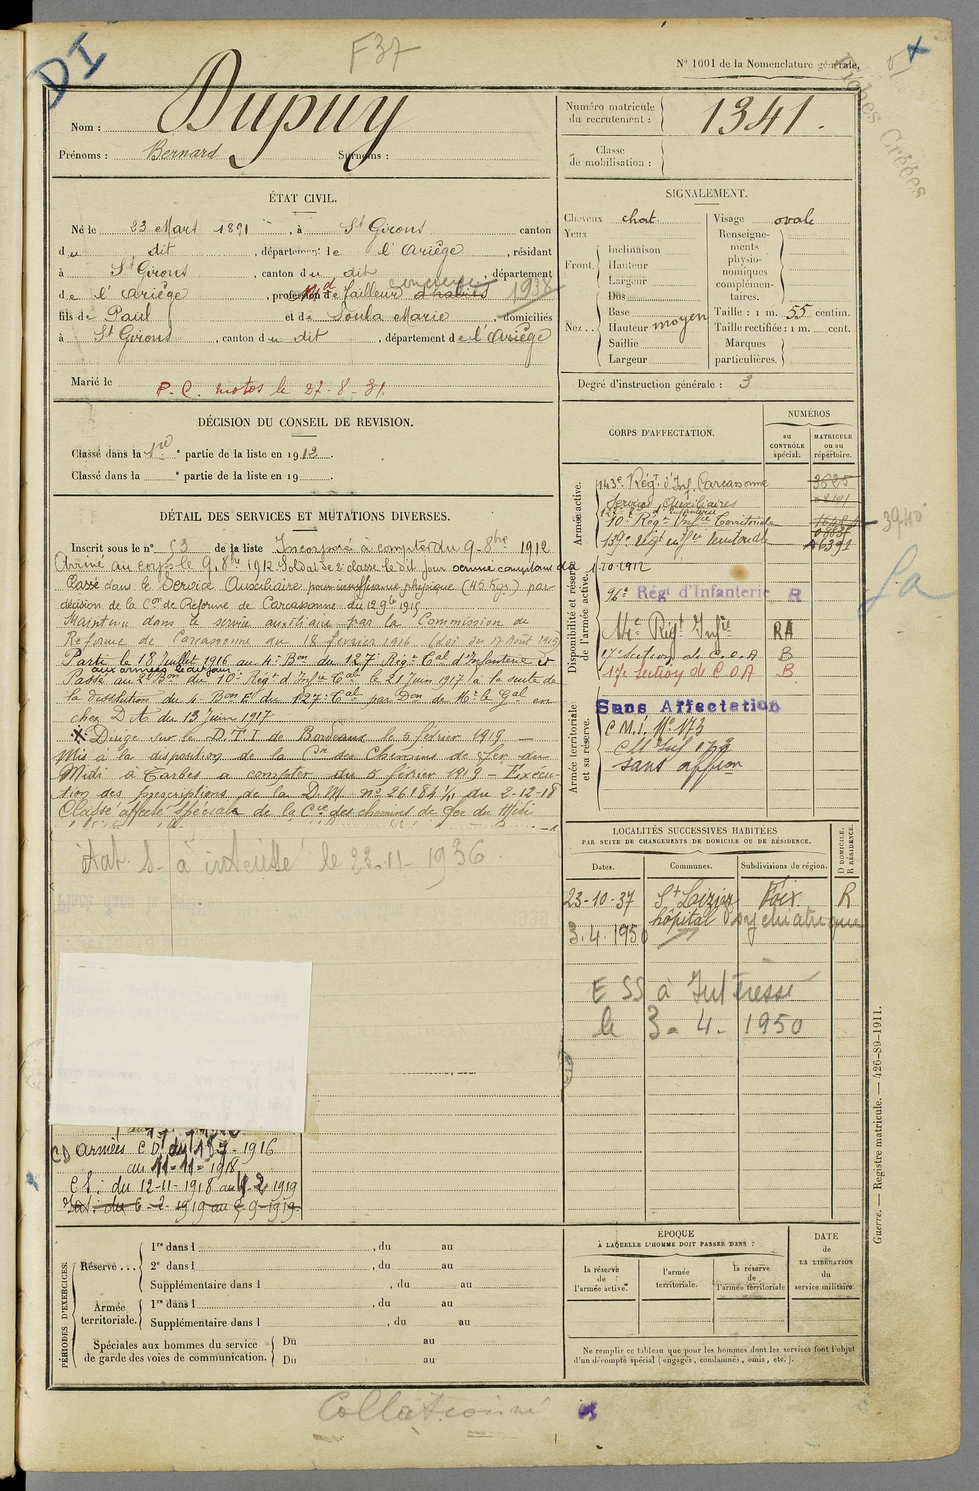 DI
F 37
N° 1001 de la Nomenclature générale.
Nom : Dupuy
Prénoms : Bernard Surnoms :
Numéro matricule du recrutement : 1341.
Classe de mobilisation :
ÉTAT CIVIL.
Né le 23 Mars 1891, à St Girons canton
du dit, département de l'Ariège, résidant
à St Girons, canton du dit, département
de l'Ariège, profession de tailleur d'habits 1938
fils de Paul et de Soula Marie, domiciliés
à St Girons, canton du dit, département de l'Ariège
Marié le
P. C. motos le 27-8-31.
SIGNALEMENT.
Cheveux chat. Visage ovale
Yeux
Front. Inclinaison
Hauteur
Largeur
Nez.. Dos
Base
Hauteur moyen
Saillie
Largeur
Renseignements physionomiques complémentaires.
Taille : 1 m. 55 centim.
Taille rectifiée : 1 m. cent.
Marques particulières.
Degré d'instruction générale : 3
DÉCISION DU CONSEIL DE REVISION.
Classé dans la 1re partie de la liste en 1912.
Classé dans la e partie de la liste en 19
DÉTAIL DES SERVICES ET MUTATIONS DIVERSES.
Inscrit sous le n° 53 de la liste Incorporé à compter du 9-8bre 1912
Arrivé au corps le 9. 8bre 1912 Soldat de 2e classe le dit jour comptant du 1-10-1912
Classé dans le Service Auxiliaire pour insuffisance physique (45 Kgs) par
décision de la Con de Réforme de Carcassonne du 29 1915
Maintenu dans le service auxiliaire par la Commission de
Réforme de Carcassonne du 18 février 1916 (Loi du 17 Août 1915)
Parti le 18 Juillet 1916 au 4e Bon du 127e Régt Cal d'Infanterie
aux armées le dit jour
Passé au 2e Bon du 10e Régt d'Infie Cale le 21 Juin 1917 à la suite de
la dissolution du 4 Bon E. du 127e Cal par Don de Mr le Gal en
chef D A du 13 Juin 1917
Dirigé sur le D.T.I de Bordeaux le 5 février 1919 —
Mis à la disposition de la Cie des Chemins de fer du
Midi à Tarbes à compter du 5 février 1919 - Exécu-
tion des prescriptions de la D.M. n° 26184 1/11 du 2-12-18
Classé affecté Spécial de la Cie des chemins de fer du Midi
à intéressé le 23-11-1936.
CD Armées C D du 18-7-1916
au 11-11-1918
C S : du 12-11-1918 au 2 1919
CORPS D'AFFECTATION.
NUMÉROS
au CONTRÔLE spécial.
MATRICULE ou au répertoire.
Armée active.
143e Régt d'Inf Carcassonne 3625
Services Auxiliaires
10e Régt Infie Territoriale
139e Régt Infie Territoriale
3940
Disponibilité et réserve de l'armée active.
96e Régt d'Infanterie R
14e Régt Infie RA
17e Section de C.O.A B
17e Section de C O A B
Armée territoriale et sa réserve.
Sans Affectation
C M.I. N° 173
sans affon
LOCALITÉS SUCCESSIVES HABITÉES
PAR SUITE DE CHANGEMENTS DE DOMICILE OU DE RÉSIDENCE.
Dates. Communes. Subdivisions de région. D DOMICILE. R RÉSIDENCE.
23-10-37 St Lizier Foix R
hôpital Psychiatrique
3.4.1950
E SS à Intéressé
le 3-4-1950
PÉRIODES D'EXERCICES.
Réserve... 1re dans l , du au
2e dans l , du au
Supplémentaire dans l , du au
Armée territoriale. 1re dans l , du au
Supplémentaire dans l , du au
Spéciales aux hommes du service de garde des voies de communication. Du au
Du au
ÉPOQUE
À LAQUELLE L'HOMME DOIT PASSER DANS :
la réserve de l'armée active.
l'armée territoriale.
la réserve de l'armée territoriale
DATE de LA LIBÉRATION du service militaire.
Ne remplir ce tableau que pour les hommes dont les services font l'objet
d'un décompte spécial (engagés, condamnés, omis, etc.).
Guerre. — Registre matricule. — 426-89-1911.
Collationné